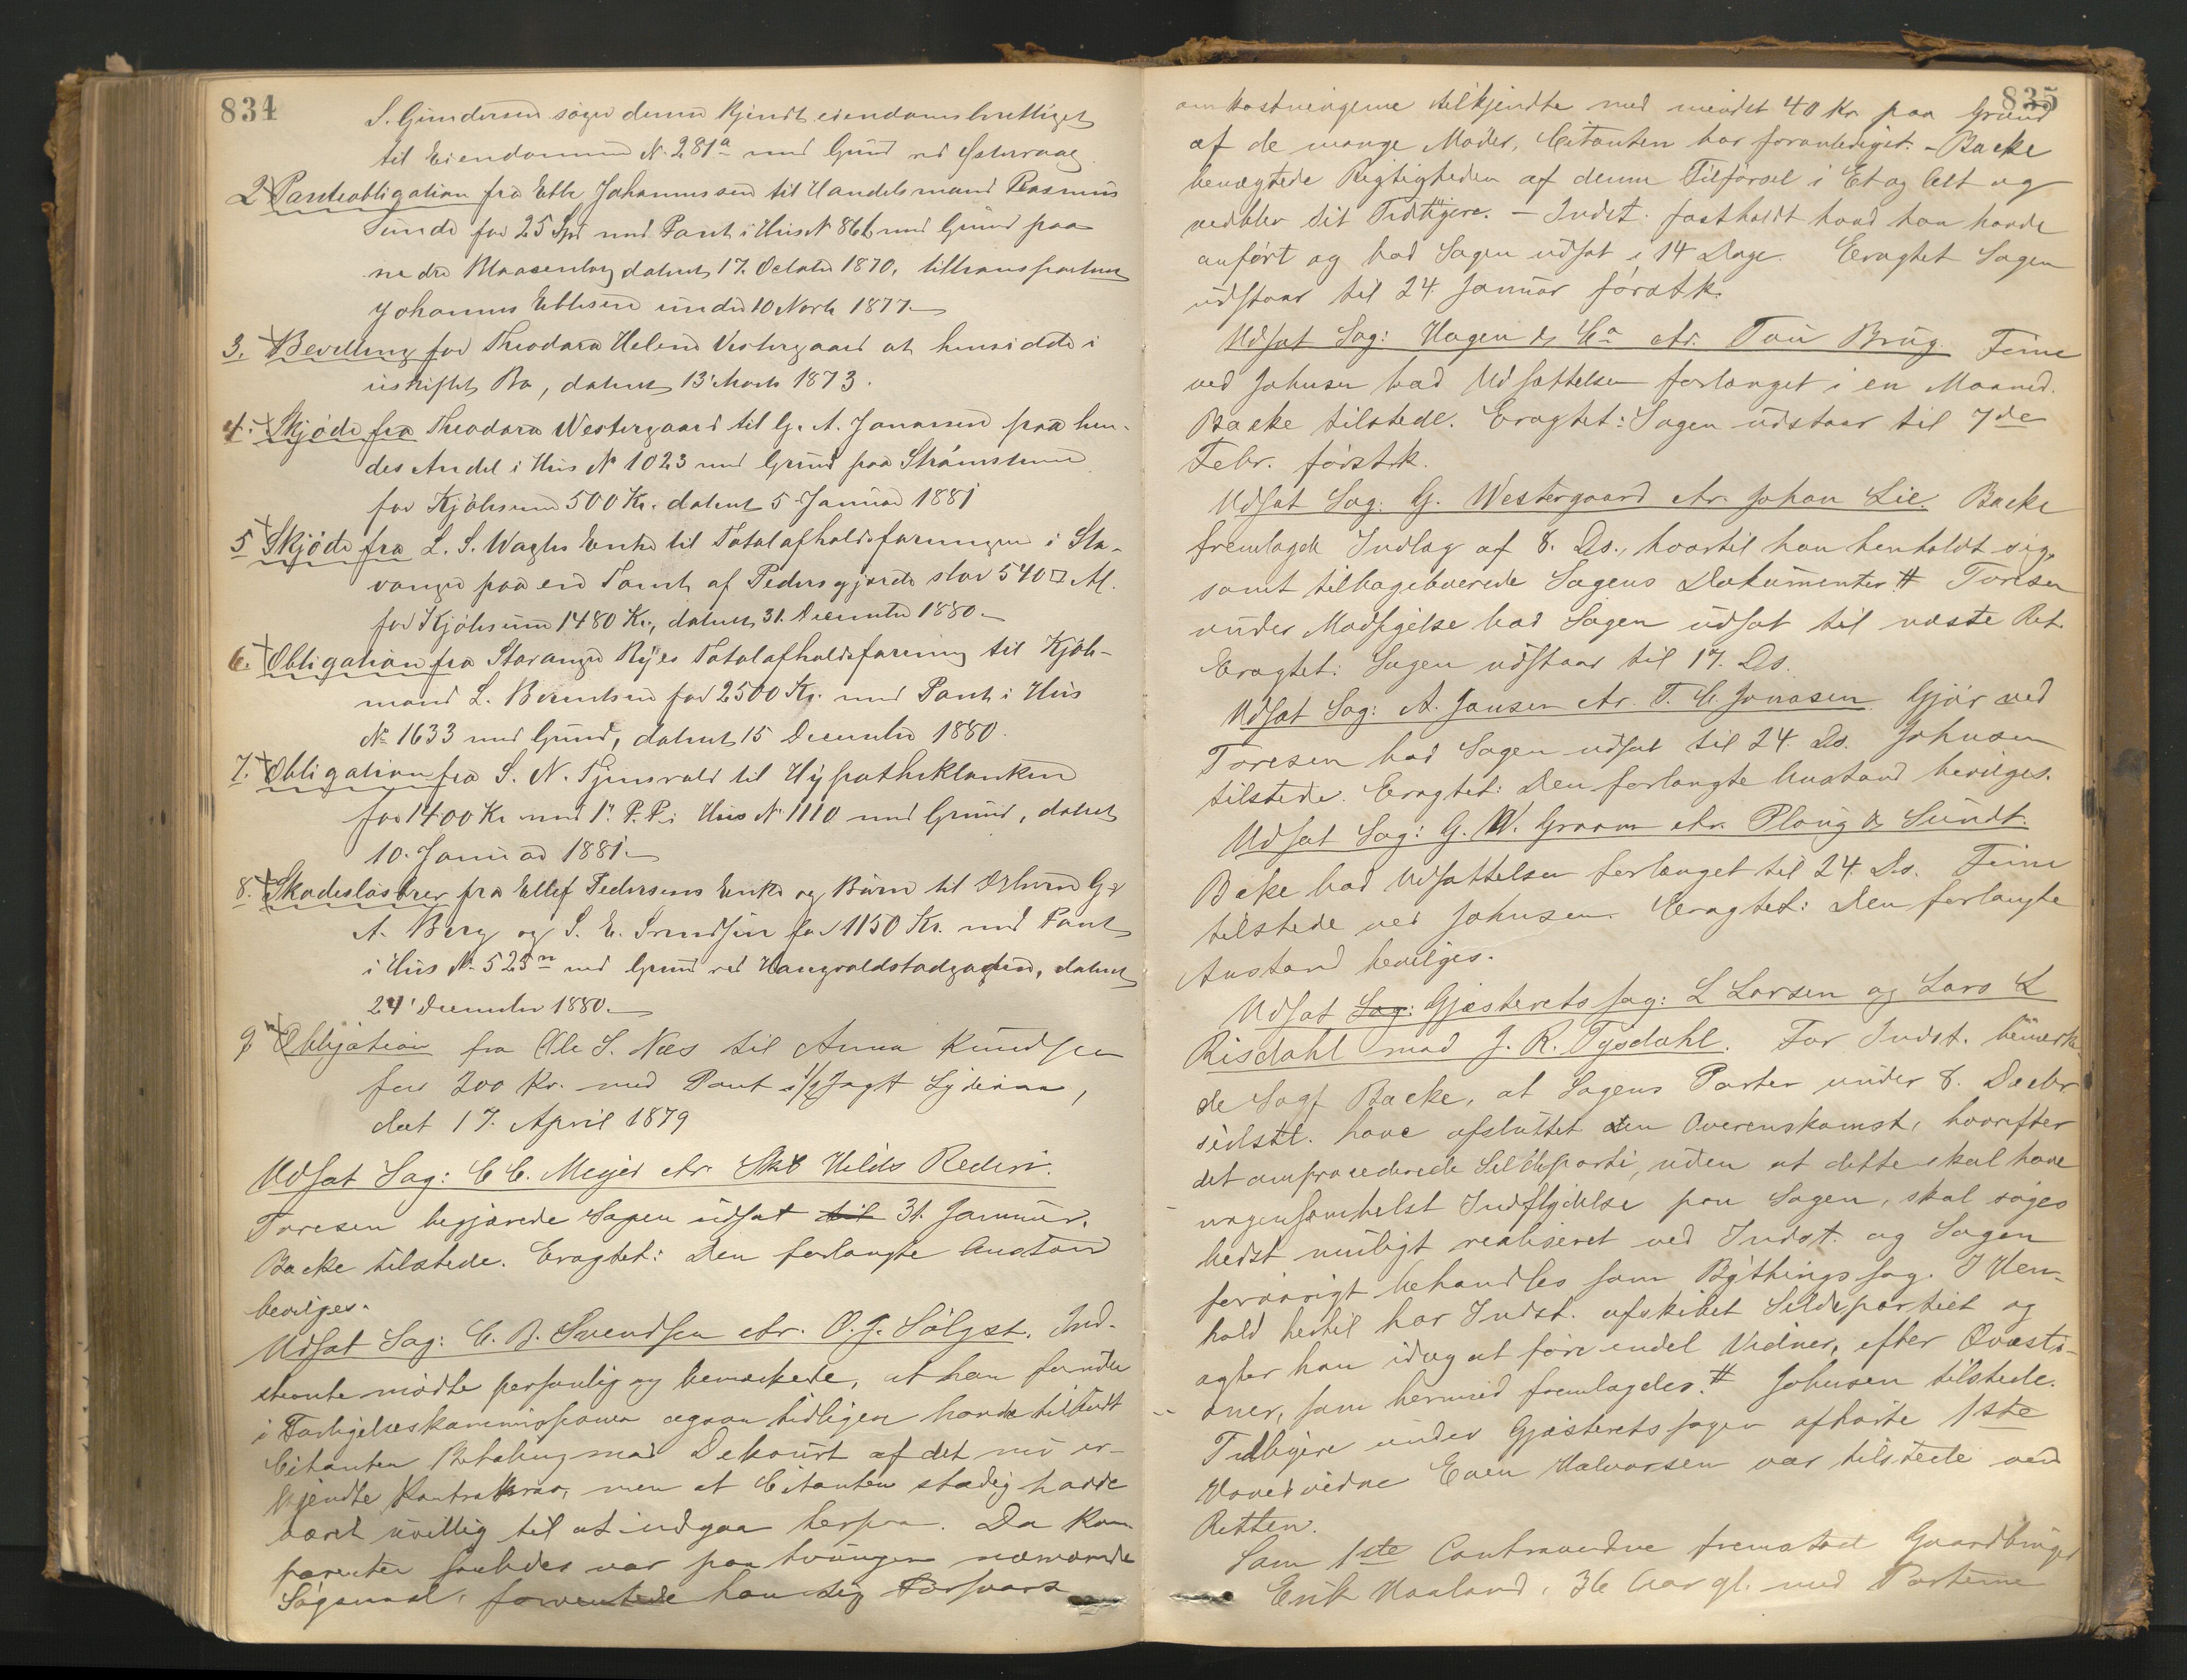 834
S. Gundersen søger denne kjendt eiendomsberettiget
til Eiendommen No 281a med Grund ved Østervaag
2 Panteobligation fra Ebbe Johannessen til Handelsmand Rasmus
Sunde for 25 Spd med Pant i Hus No 866 med Grund paa
nedre Blaasenborg dateret 17. October 1870, tiltransporteret
Johannes Ebbesen under 10 Marts 1877
3. Bevilling for Theodora Helene Vestergaard at hensidde i
uskiftet Bo, dateret 13 Marts 1873.
4. Skjøde fra Theodora Westergaard til G. A. Jonassen paa hen-
des Andel i Hus No 1023 med Grund paa Strømsteen
for Kjøbesum 500 Kr. dateret 5 Januar 1881
5 Skjøde fra L. S. Wagles Enke til Totalafholdsforeningen i Sta-
vanger paa en Tomt af Pedersgjerde stor 540 □ Al.
for Kjøbesum 1480 Kr., dateret 31. December 1880.
6. Obligation fra Stavanger Nyes Totalafholdsforening til Kjøb-
mand L. Berentsen for 2500 Kr. med Pant i Hus
No 1633 med Grund, dateret 15 December 1880.
7. Obligation fra S. N. Tjensvold til Hypothekbanken
for 1400 Kr med 1. P. P. i Hus No 1110 med Grund, dateret
10. Januar 1881.
8. Skadesløsbrev fra Ellef Pedersens Enke og Børn til
A. Berg og S. E. Svendsen for 1150 Kr. med Pant
i Hus No 525 med Grund ved Haugvaldstadgaden, dateret
24 December 1880.
9 Obligation fra Ole S. Næs til Anna Knudsen
for 200 Kr. med Pant i 1/2 Jagt Lydiana,
dat 17. April 1879
Udsat Sag: C C. Meyer ctr. Skib Hilds Rederi.
Toresen begjærede Sagen udsat til 31. Januar.
Backe tilstede. Eragtet: Den forlangte Anstand
bevilges.
Udsat Sag: C. B. Svendsen ctr. O. J. Sølgst. Ind-
stevnte mødte personlig og bemærkede, at han
i Forligelseskommissionen ogsaa tidligere havde tilbudt
Citanten Betaling mod Dekourt af det nu er-
kjendte Kontrakrav, men at Citanten stadig havde
været uvillig til at indgaa herpaa. Da Kom-
parenten saaledes var paatvungen nærværende
Søgsmaal, forventede han sig Forsvars
835
omkostningerne tilkjendte med mindst 40 Kr paa Grund
af de mange Møder, Citanten har foranlediget. - Backe
benægtede Rigtigheden af denne Tilførsel i Et og Alt og
vedblev sit Tidligere. - Indst. fastholdt hvad han havde
anført og bad Sagen udsat i 14 Dage. Eragtet Sagen
udstaar til 24 Januar førstk.
Udsat Sag: Hagen & Co ctr. Tou Brug. Feine
ved Johnsen bad Udsættelsen forlænget i en Maaned.
Backe tilstede. Eragtet: Sagen udstaar til 7de
Febr. førstk.
Udsat Sag: G. Westergaard ctr. Johan Lie. Backe
fremlagde Indlæg af 8. Ds., hvortil han henholdt sig,
samt tilbageleverede Sagens Dokumenter. # Toresen
under Modsigelse bad Sagen udsat til næste Ret.
Eragtet: Sagen udstaar til 17. Ds.
Udsat Sag: A. Jansen ctr. T. C. Jonasen. Gjør ved
Toresen bad Sagen udsat til 24. Ds. Johnsen
tilstede. Eragtet: Den forlangte Anstand bevilges.
Udsat Sag: G. W. Graam ctr. Ploug & Sundt.
Backe bad Udsættelsen forlænget til 24. Ds. Feine
tilstede ved Johnsen. Eragtet: Den forlangte
Anstand bevilges.
Udsat Sag: Gjæsteretssag: L Larsen og Lars L
Risdahl mod J. R. Tysdahl. For Indst. bemærke-
de Sagf Backe, at Sagens Parter under 8. Decbr.
sidstl. have afsluttet en Overenskomst, hvorefter
det omprocederede Sildeparti, uden at dette skal have
nogensomhelst Indflydelse paa Sagen, skal søges
bedst muligt realiseret ved Indst. og Sagen
forøvrigt behandles som Bythingssag. I Hen-
hold hertil har Indst. afskibet Sildepartiet og
agter han idag at føre endel Vidner, efter Qvæsti-
oner, som hermed fremlagdes. # Johnsen tilstede.
Tidligere under Gjæsteretssagen afhørte 1ste
Hovedvidne Even Halvorsen var tilstede ved
Retten.
Som 1ste Contravidne fremstod Gaardbruger
Erik Haaland, 36 Aar gl. med Parterne